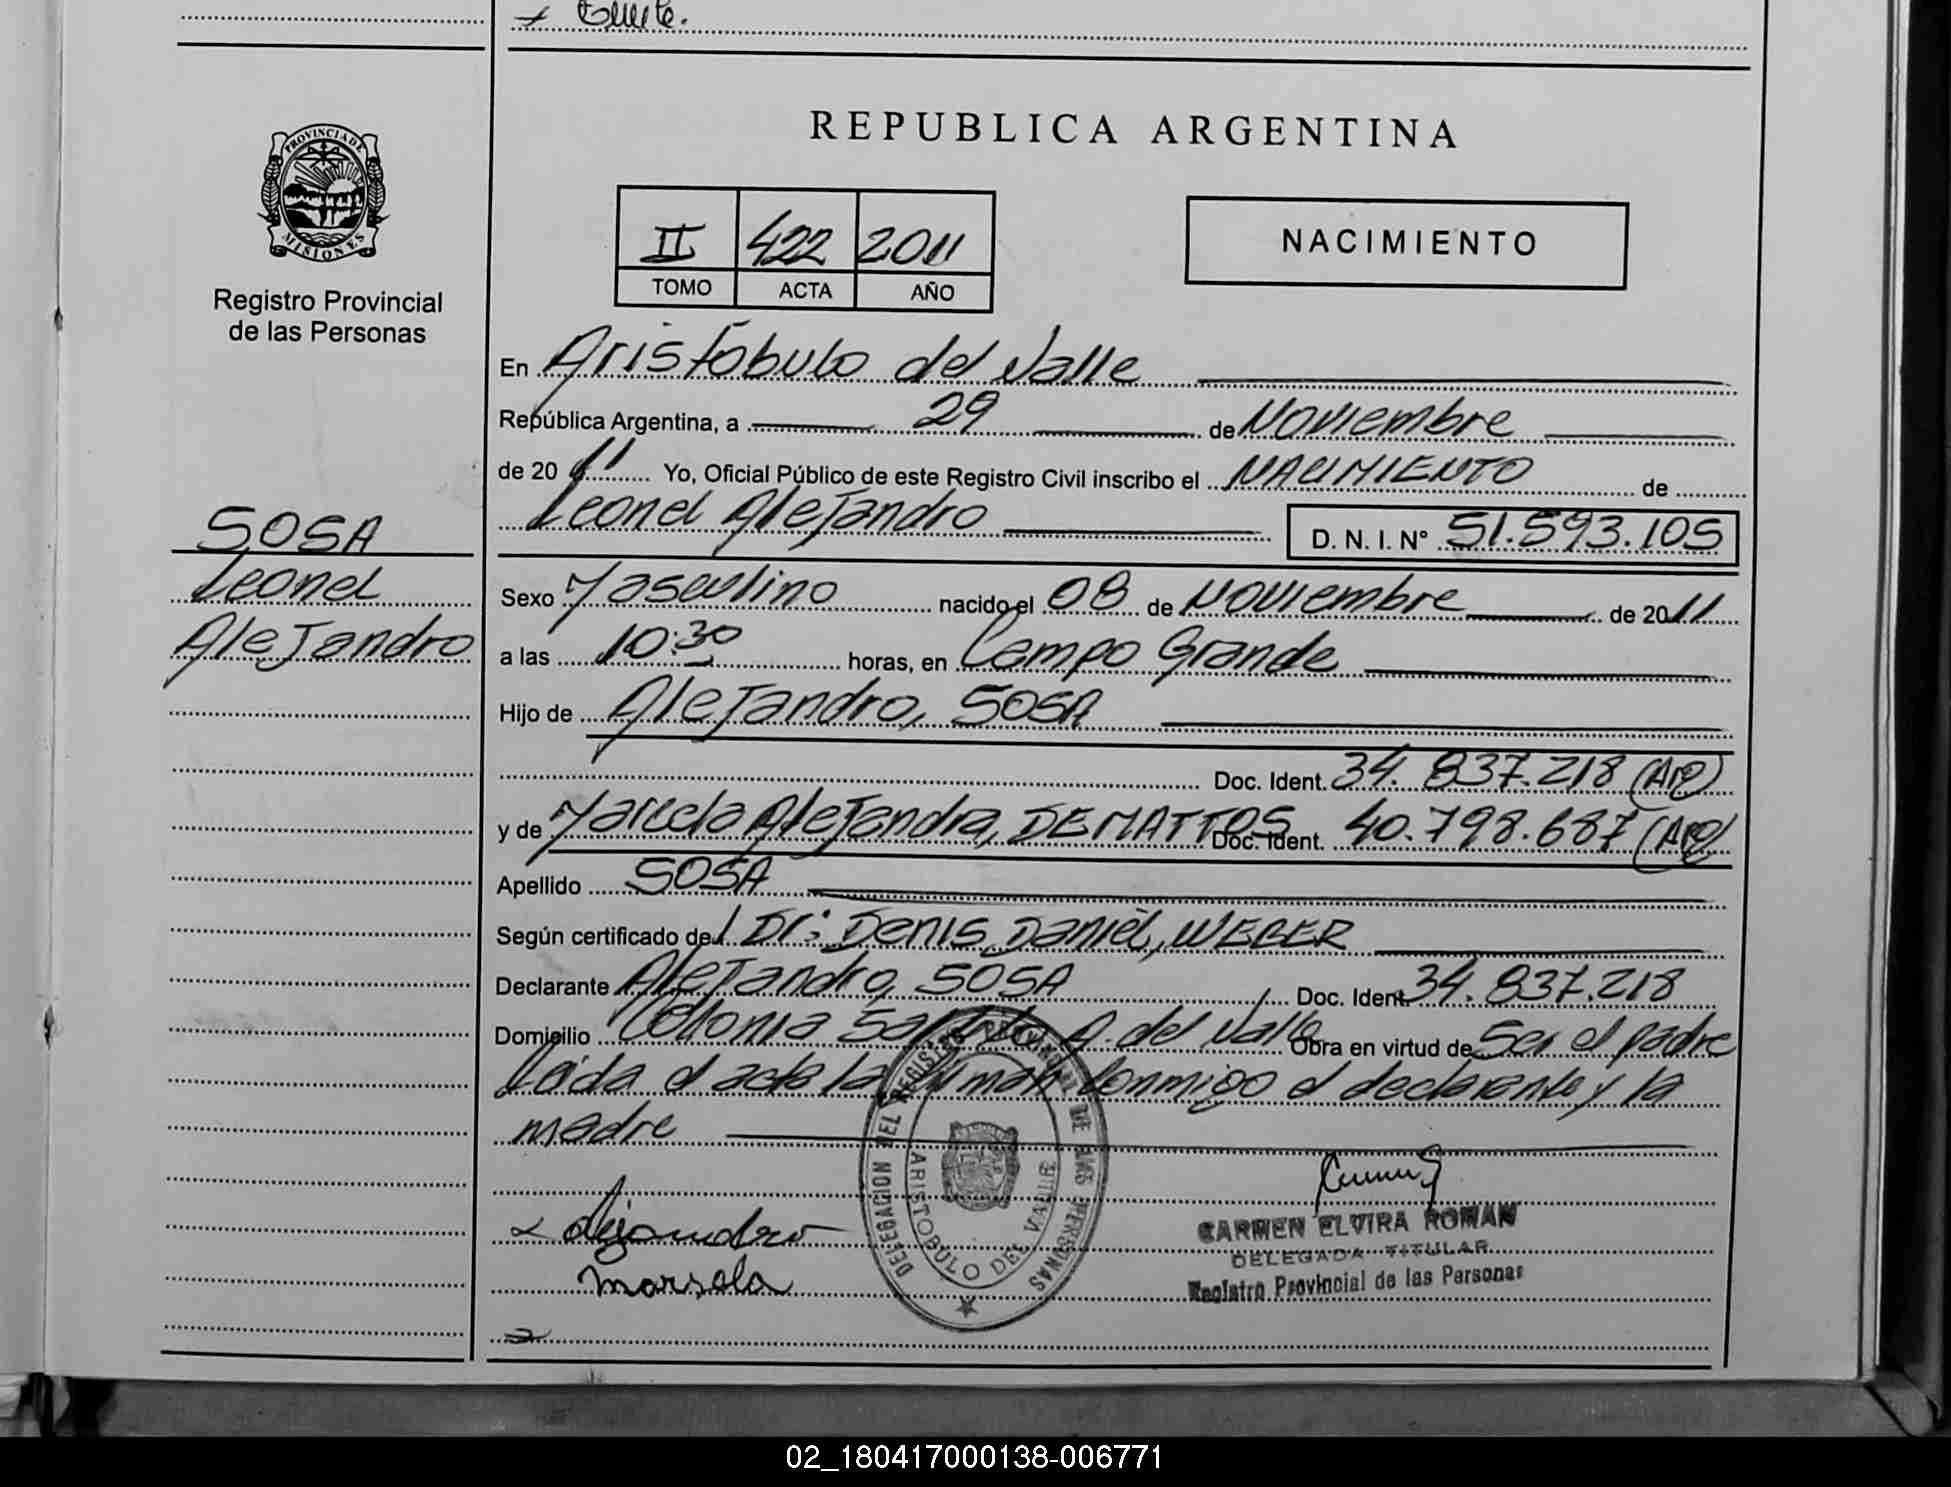 PROVINCIA DE
MISIONES
Registro Provincial
de las Personas
SOSA
Leonel
Alejandro
REPUBLICA ARGENTINA
II 422 2011
TOMO ACTA AÑO
NACIMIENTO
En Aristóbulo del Valle
República Argentina, a 29 de Noviembre
de 20 11 Yo, Oficial Público de este Registro Civil inscribo el NACIMIENTO de
Leonel Alejandro D. N. I. N° 51.593.105
Sexo Masculino nacido el 08 de Noviembre de 2011
a las 10:30 horas, en Campo Grande
Hijo de Alejandro, SOSA
Doc. Ident. 34.837.218 (Arg)
y de Marcela Alejandra, DE MATTOS Doc. Ident. 40.798.687 (Arg)
Apellido SOSA
Según certificado del Dr: Denis Daniel, WEBER
Declarante Alejandro, SOSA Doc. Ident. 34.837.218
Domicilio Colonia A. del Valle Obra en virtud de Ser el padre
Leída el acta la firman conmigo el declarante y la
madre
Alejandro
Marsela
DELEGACION DEL REGISTRO PROVINCIAL DE LAS PERSONAS
ARISTOBULO DEL VALLE
CARMEN ELVIRA ROMAN
DELEGADA TITULAR
Registro Provincial de las Personas
02_180417000138-006771